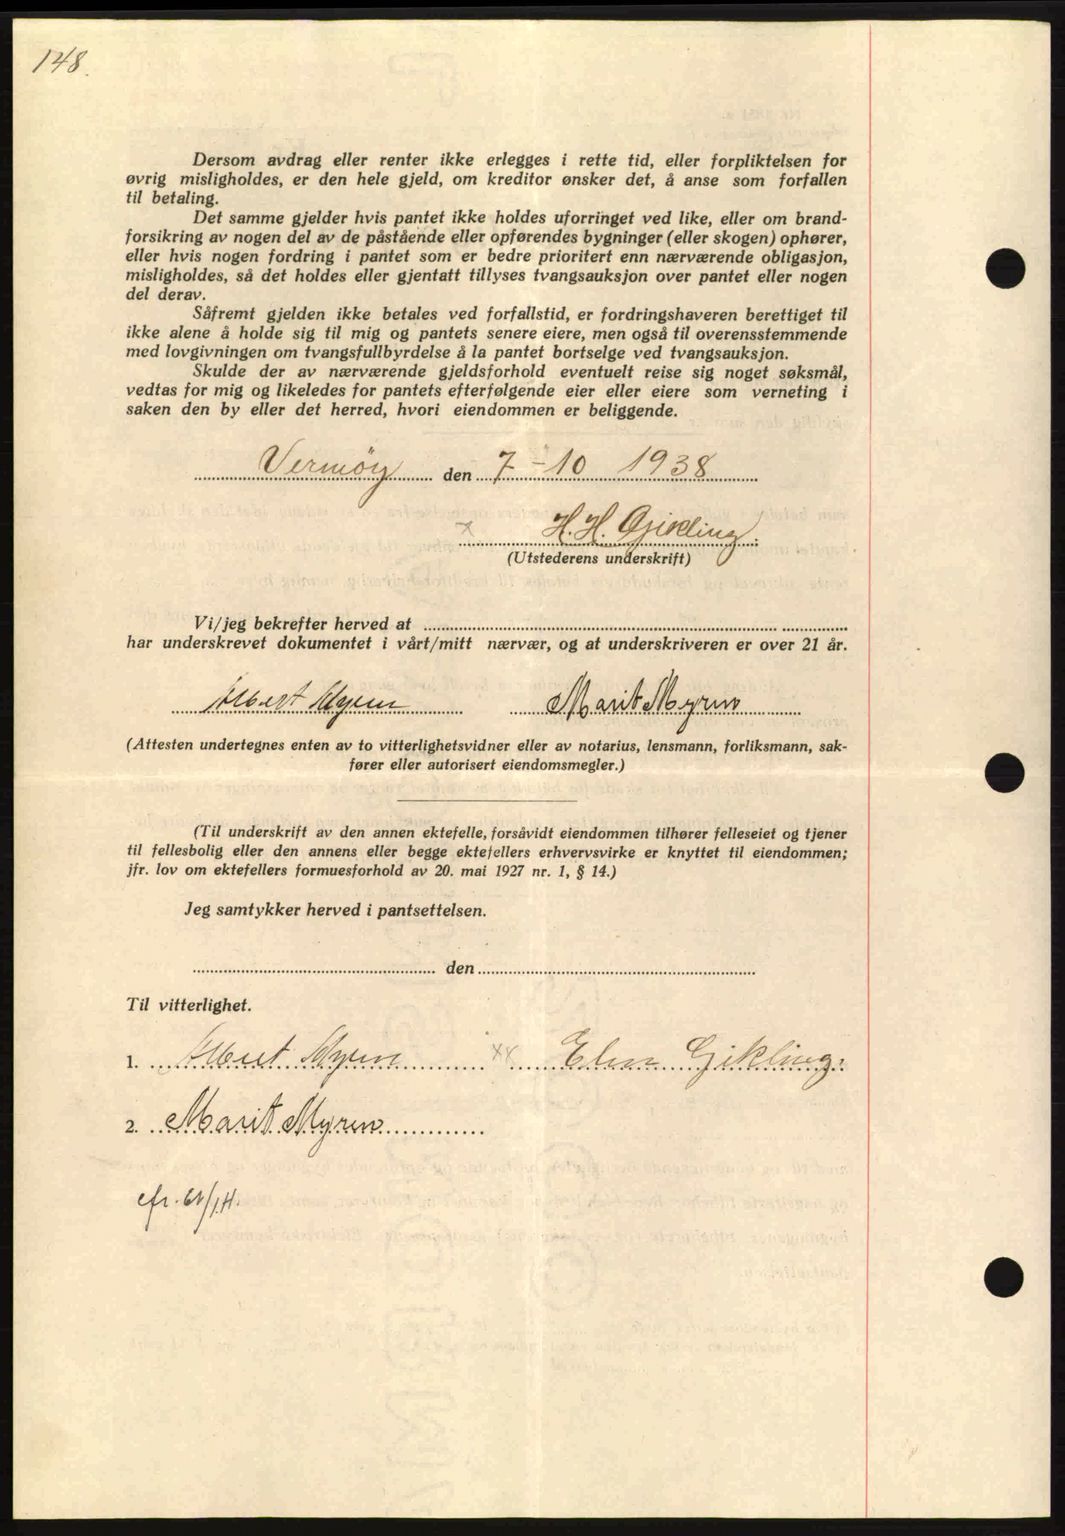 148.
Dersom avdrag eller renter ikke erlegges i rette tid, eller forpliktelsen for
øvrig misligholdes, er den hele gjeld, om kreditor ønsker det, å anse som forfallen
til betaling.
Det samme gjelder hvis pantet ikke holdes uforringet ved like, eller om brand-
forsikring av nogen del av de påstående eller opførendes bygninger (eller skogen) ophører,
eller hvis nogen fordring i pantet som er bedre prioritert enn nærværende obligasjon,
misligholdes, så det holdes eller gjentatt tillyses tvangsauksjon over pantet eller nogen
del derav.
Såfremt gjelden ikke betales ved forfallstid, er fordringshaveren berettiget til
ikke alene å holde sig til mig og pantets senere eiere, men også til overensstemmende
med lovgivningen om tvangsfullbyrdelse å la pantet bortselge ved tvangsauksjon.
Skulde der av nærværende gjeldsforhold eventuelt reise sig noget søksmål,
vedtas for mig og likeledes for pantets efterfølgende eier eller eiere som verneting i
saken den by eller det herred, hvori eiendommen er beliggende.
Vermøy den 7-10 1938
x H. H. Gjikling
(Utstederens underskrift)
Vi/jeg bekrefter herved at
har underskrevet dokumentet i vårt/mitt nærvær, og at underskriveren er over 21 år.
Albert Myren Marit Myren
(Attesten undertegnes enten av to vitterlighetsvidner eller av notarius, lensmann, forliksmann, sak-
fører eller autorisert eiendomsmegler.)
(Til underskrift av den annen ektefelle, forsåvidt eiendommen tilhører felleseiet og tjener
til fellesbolig eller den annens eller begge ektefellers erhvervsvirke er knyttet til eiendommen;
jfr. lov om ektefellers formuesforhold av 20. mai 1927 nr. 1, § 14.)
Jeg samtykker herved i pantsettelsen.
den
Til vitterlighet.
1. Albert Myren xx Elen Gikling
2. Marit Myren